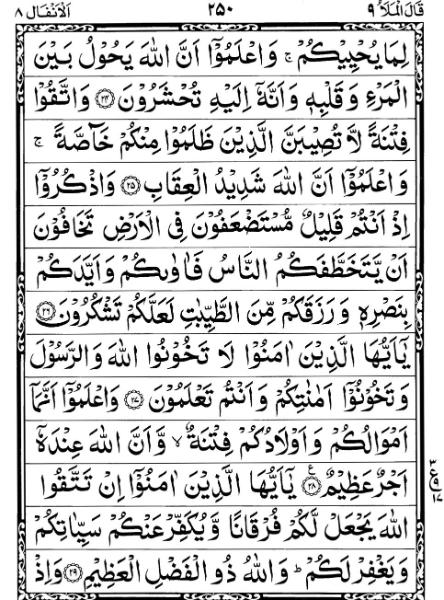 قَالَ الْمَلَاُ ٩ ٢٥٠ اَلْاَنْفَال ٨
لِمَا يُحْيِيْكُمْ ۚ وَاعْلَمُوْۤا اَنَّ اللّٰهَ يَحُوْلُ بَيْنَ
الْمَرْءِ وَقَلْبِهٖ وَاَنَّهٗۤ اِلَيْهِ تُحْشَرُوْنَ ﴿۲۴﴾ وَاتَّقُوْا
فِتْنَةً لَّا تُصِيْبَنَّ الَّذِيْنَ ظَلَمُوْا مِنْكُمْ خَآصَّةً ۚ
وَاعْلَمُوْۤا اَنَّ اللّٰهَ شَدِيْدُ الْعِقَابِ ﴿۲۵﴾ وَاذْكُرُوْۤا
اِذْ اَنْتُمْ قَلِيْلٌ مُّسْتَضْعَفُوْنَ فِى الْاَرْضِ تَخَافُوْنَ
اَنْ يَّتَخَطَّفَكُمُ النَّاسُ فَاٰوٰىكُمْ وَاَيَّدَكُمْ
بِنَصْرِهٖ وَرَزَقَكُمْ مِّنَ الطَّيِّبٰتِ لَعَلَّكُمْ تَشْكُرُوْنَ ﴿۲۶﴾
يٰۤاَيُّهَا الَّذِيْنَ اٰمَنُوْا لَا تَخُوْنُوا اللّٰهَ وَالرَّسُوْلَ
وَتَخُوْنُوْۤا اَمٰنٰتِكُمْ وَاَنْتُمْ تَعْلَمُوْنَ ﴿۲۷﴾ وَاعْلَمُوْۤا اَنَّمَاۤ
اَمْوَالُكُمْ وَاَوْلَادُكُمْ فِتْنَةٌ ۙ وَّاَنَّ اللّٰهَ عِنْدَهٗۤ
اَجْرٌ عَظِيْمٌ ﴿۲۸﴾ ع يٰۤاَيُّهَا الَّذِيْنَ اٰمَنُوْۤا اِنْ تَتَّقُوا
اللّٰهَ يَجْعَلْ لَّكُمْ فُرْقَانًا وَّيُكَفِّرْ عَنْكُمْ سَيِّاٰتِكُمْ
وَيَغْفِرْ لَكُمْ ؕ وَاللّٰهُ ذُو الْفَضْلِ الْعَظِيْمِ ﴿۲۹﴾ وَاِذْ
٣
ع ٩
١٧